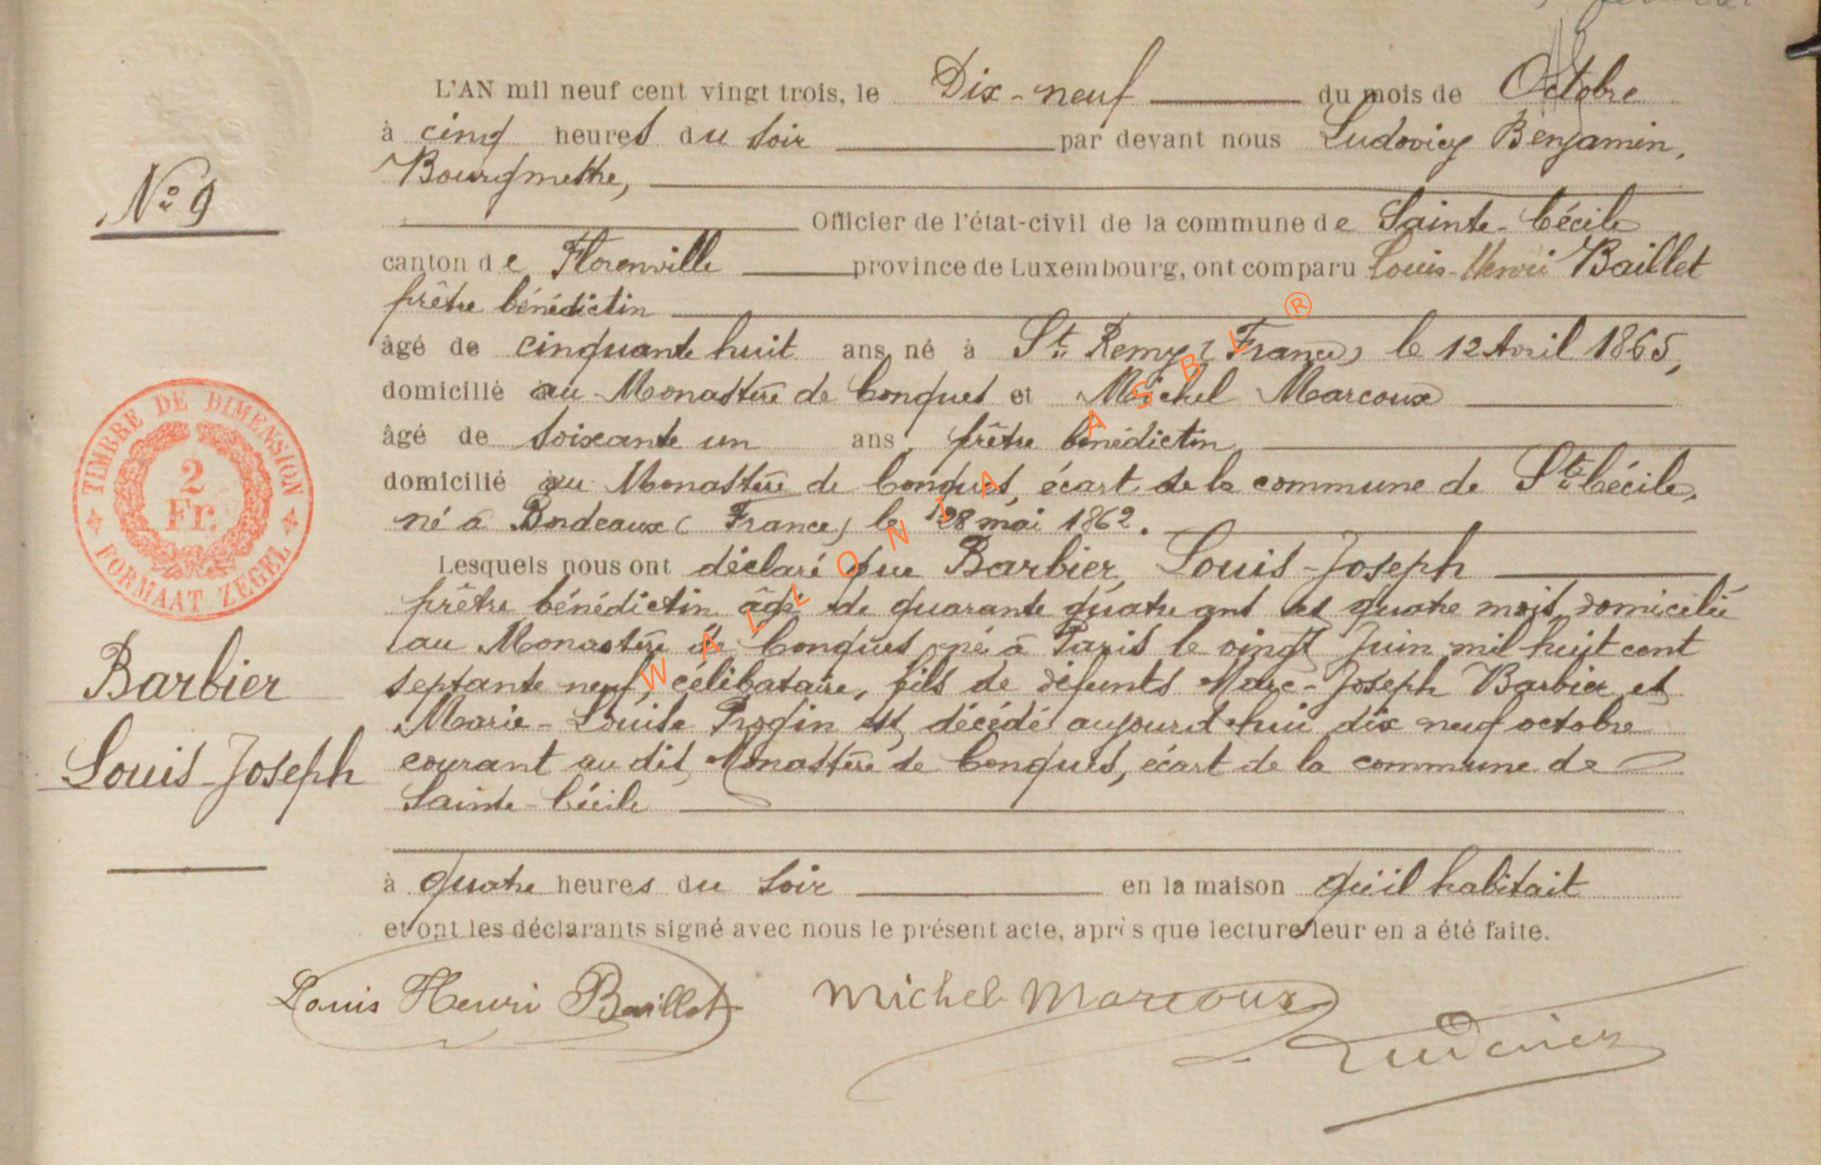 L'AN mil neuf cent vingt trois, le Dix-neuf du mois de Octobre
à cinq heures du soir par devant nous Ludovicy Benjamin,
Bourgmestre,
N° 9
Officier de l'état-civil de la commune de Sainte-Cécile
canton de Florenville province de Luxembourg, ont comparu Louis-Henri Baillet
prêtre bénédictin
âgé de cinquante huit ans né à St Remy (France) le 12 Avril 1865,
domicilié au Monastère de Conques et Michel Marcoux
âgé de soixante un ans, prêtre bénédictin
domicilié au Monastère de Conques, écart de la commune de Ste Cécile,
né à Bordeaux (France) le 28 mai 1862.
TIMBRE DE DIMENSION
2
Fr.
FORMAAT ZEGEL
Lesquels nous ont déclaré que Barbier, Louis-Joseph
prêtre bénédictin âgé de quarante quatre ans et quatre mois, domicilié
au Monastère de Conques, né à Paris le vingt Juin mil huit cent
septante neuf, célibataire, fils de défunts Marc-Joseph Barbier et
Marie-Louise Progin est décédé aujourd'hui dix neuf octobre
courant au dit Monastère de Conques, écart de la commune de
Sainte-Cécile
Barbier
Louis-Joseph
à quatre heures du soir en la maison qu'il habitait
et ont les déclarants signé avec nous le présent acte, après que lecture leur en a été faite.
Louis Henri Baillet Michel Marcoux
Ludovicy
WALLONIA ASBL ®